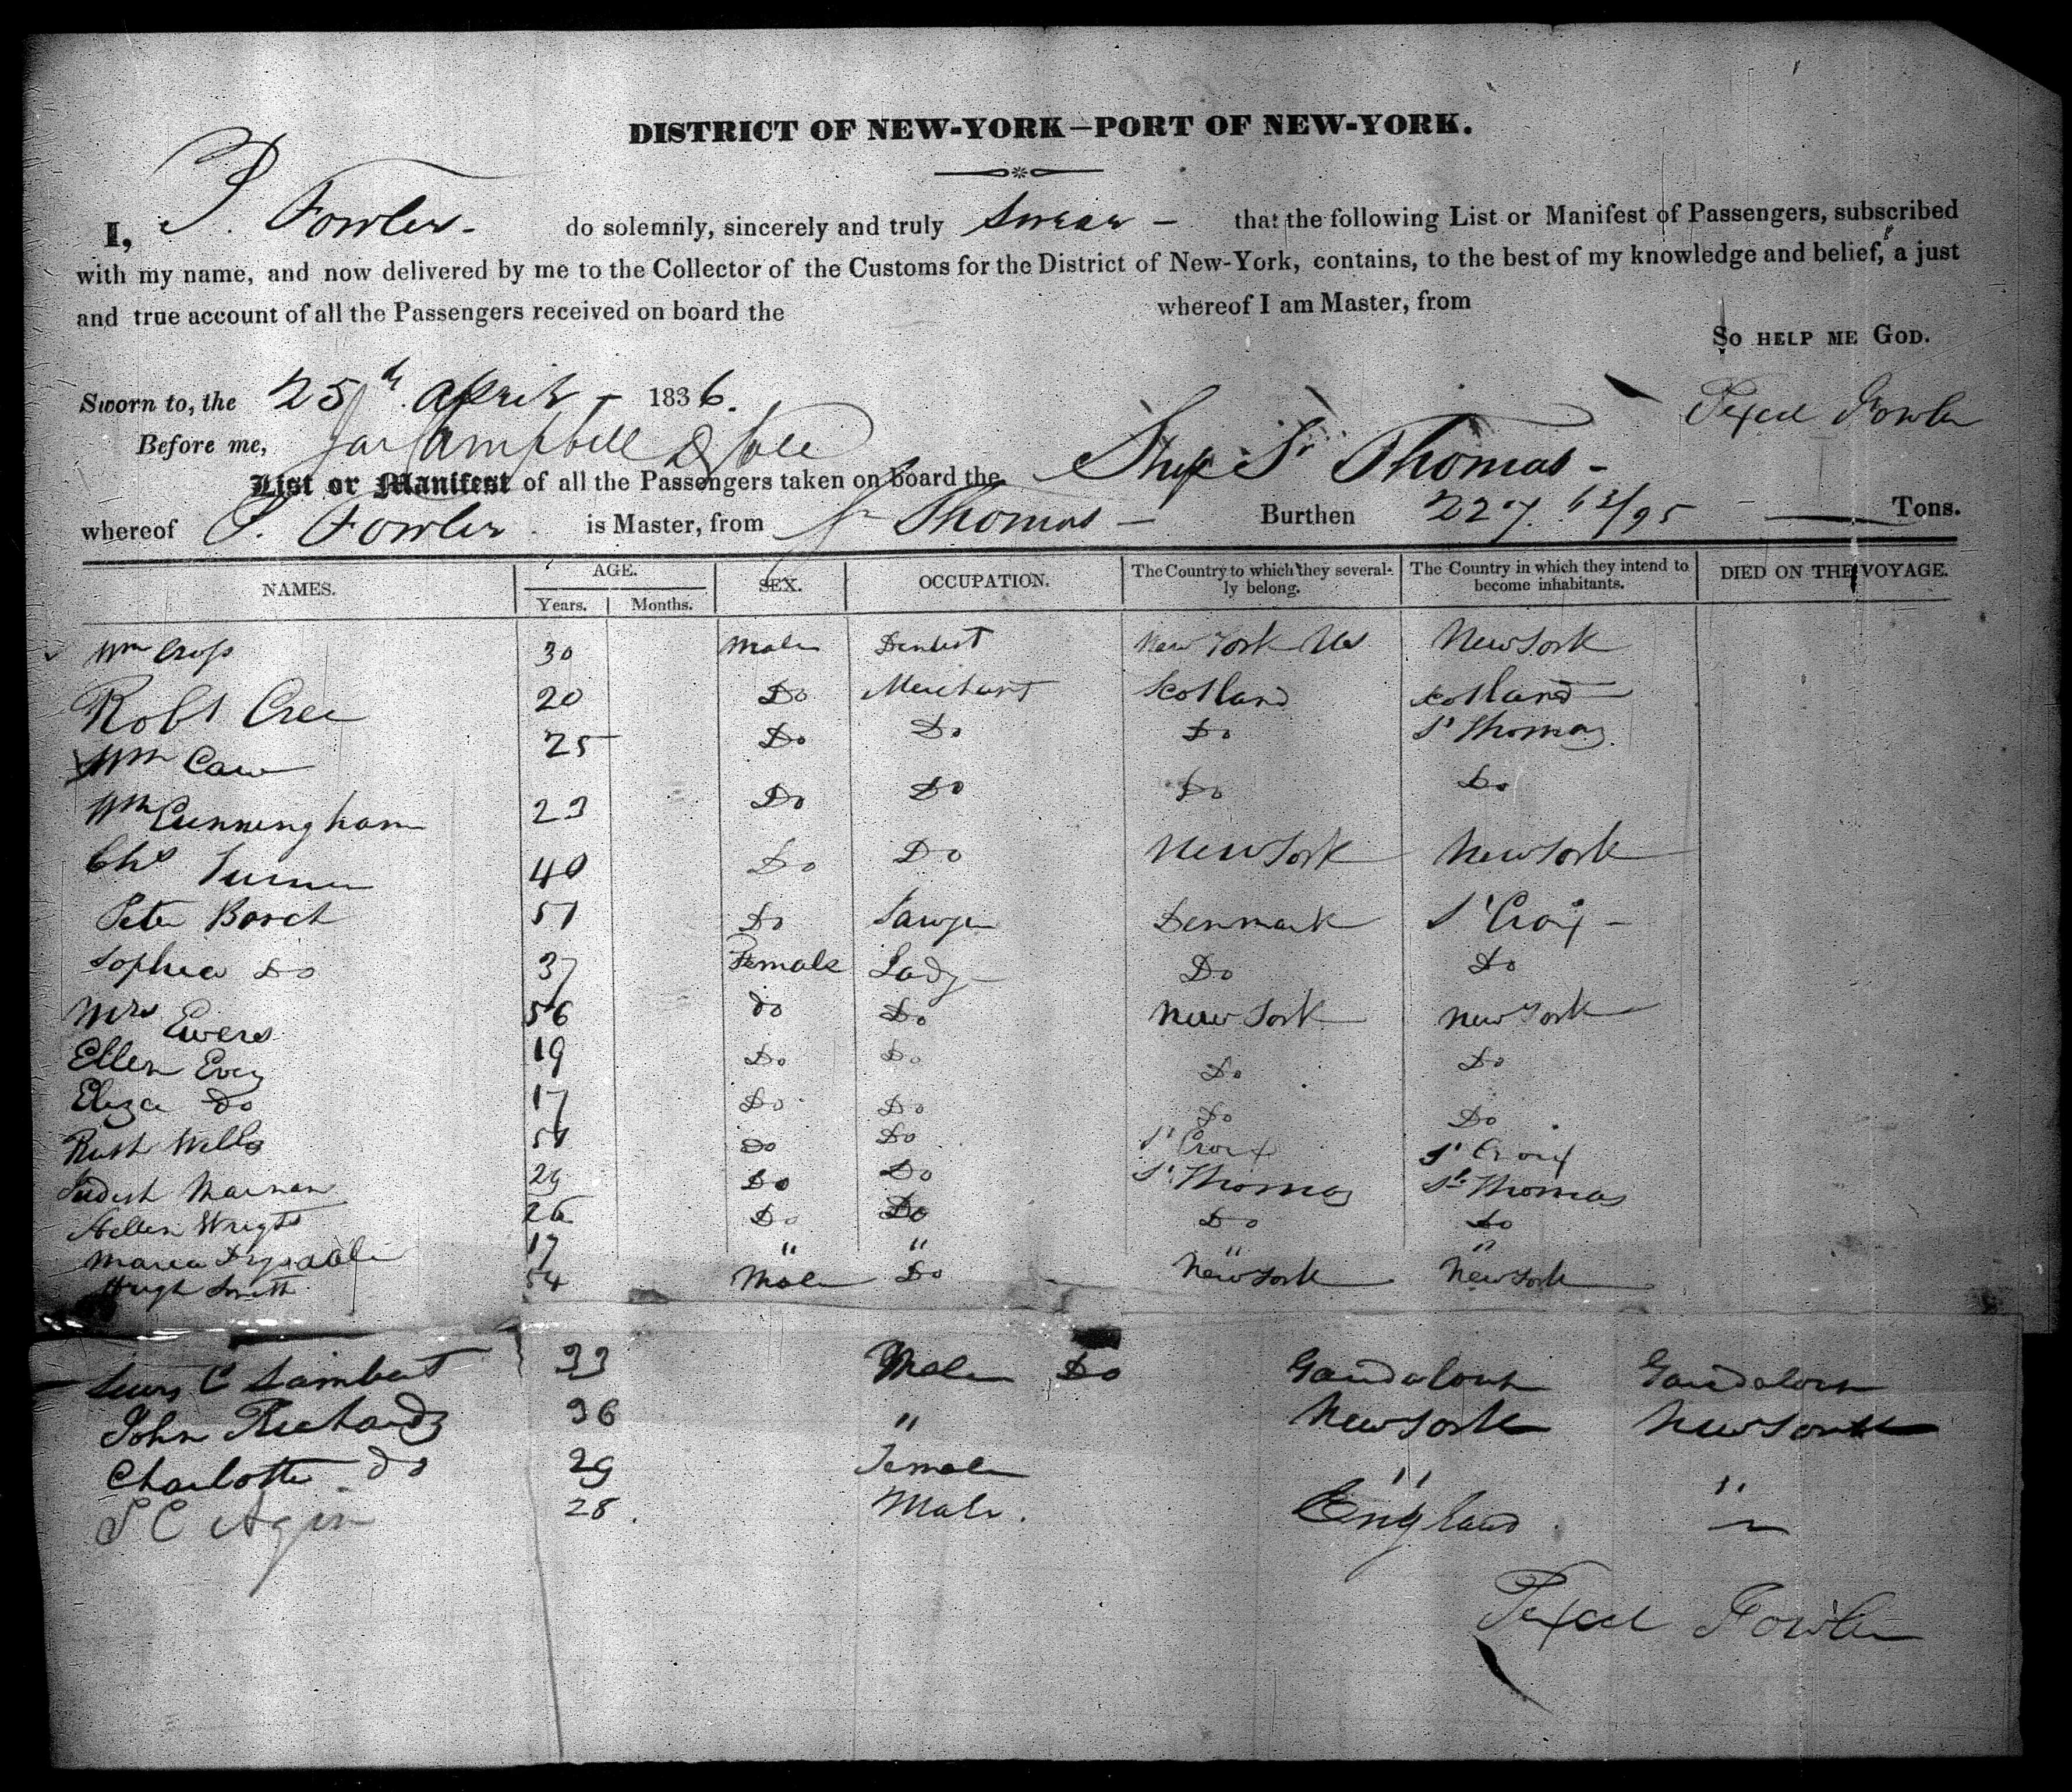 DISTRICT OF NEW-YORK—PORT OF NEW-YORK.
I, P. Fowler - do solemnly, sincerely and truly Swear - that the following List or Manifest of Passengers, subscribed
with my name, and now delivered by me to the Collector of the Customs for the District of New-York, contains, to the best of my knowledge and belief, a just
and true account of all the Passengers received on board the whereof I am Master, from
So HELP ME GOD.
Sworn to, the 25th April - 1836. Fowler
Before me, Jas Campbell
List or Manifest of all the Passengers taken on board the Ship St Thomas -
whereof P. Fowler is Master, from St Thomas - Burthen 227. 13/95 Tons.
NAMES. AGE. SEX. OCCUPATION. The Country to which they several- The Country in which they intend to DIED ON THE VOYAGE.
Years. Months. ly belong. become inhabitants.
Wm Cross 30 Male Dentist New York US New York
Robt Cree 20 Do Merchant Scotland Scotland
Wm Caw 25 Do Do Do St Thomas
Wm Cunningham 23 Do Do Do Do
Chs Turner 40 Do Do New York New York
Peter Borch 51 Do Denmark St Croix -
Sophia Do 37 Female Lady Do Do
Mrs Ewers 56 do Do New York New York
Ellen 19 Do Do Do Do
Eliza do 17 Do Do Do Do
Ruth Wills 51 Do Do St Croix St Croix
Judith 29 Do Do St Thomas St Thomas
Hellen Wright 26 Do Do Do Do
Maria 17 " " " "
Hugh Smith 54 Male Do New York New York
Lewis C Lambert 33 Male Do
John Richards 36 " New York New York
Charlotte do 29 Female " "
S C 28. Male. England
Fowler